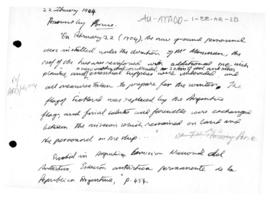 22 February 1904
Account by Pirie.
AU-ATADD-1-BB-AR-20
"On February 22 (1904) the new ground personnel
was installed under the direction of Mr
roof of the house was reinforced with additional
planks and essential supplies were unloaded and
all measures taken to prepare for the winter. The
flag of Scotland was replaced by the Argentine
flag, and final salutes and farewells were exchanged
between the mission which remained on land and
the personnel on the ship."
Quoted in Argentina Comision Nacional del
Antartico Estacion antartica permanente de la
Republica Argentina, p. 457.